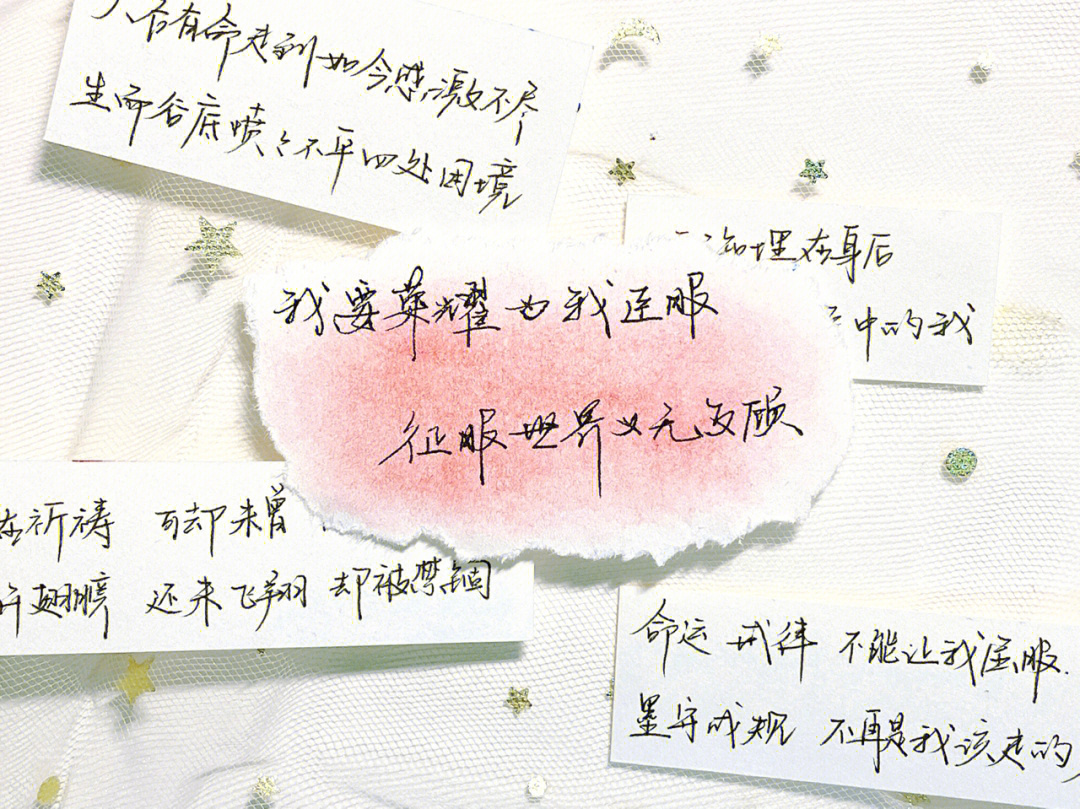 有命走到如今感激不尽
生而谷底愤愤不平四处困境
埋在身后
中的我
我要荣耀为我屈服
征服世界义无反顾
在祈祷 可却未曾
翅膀 还未飞翔 却被禁锢
命运 戒律 不能让我屈服
墨守成规 不再是我该走的